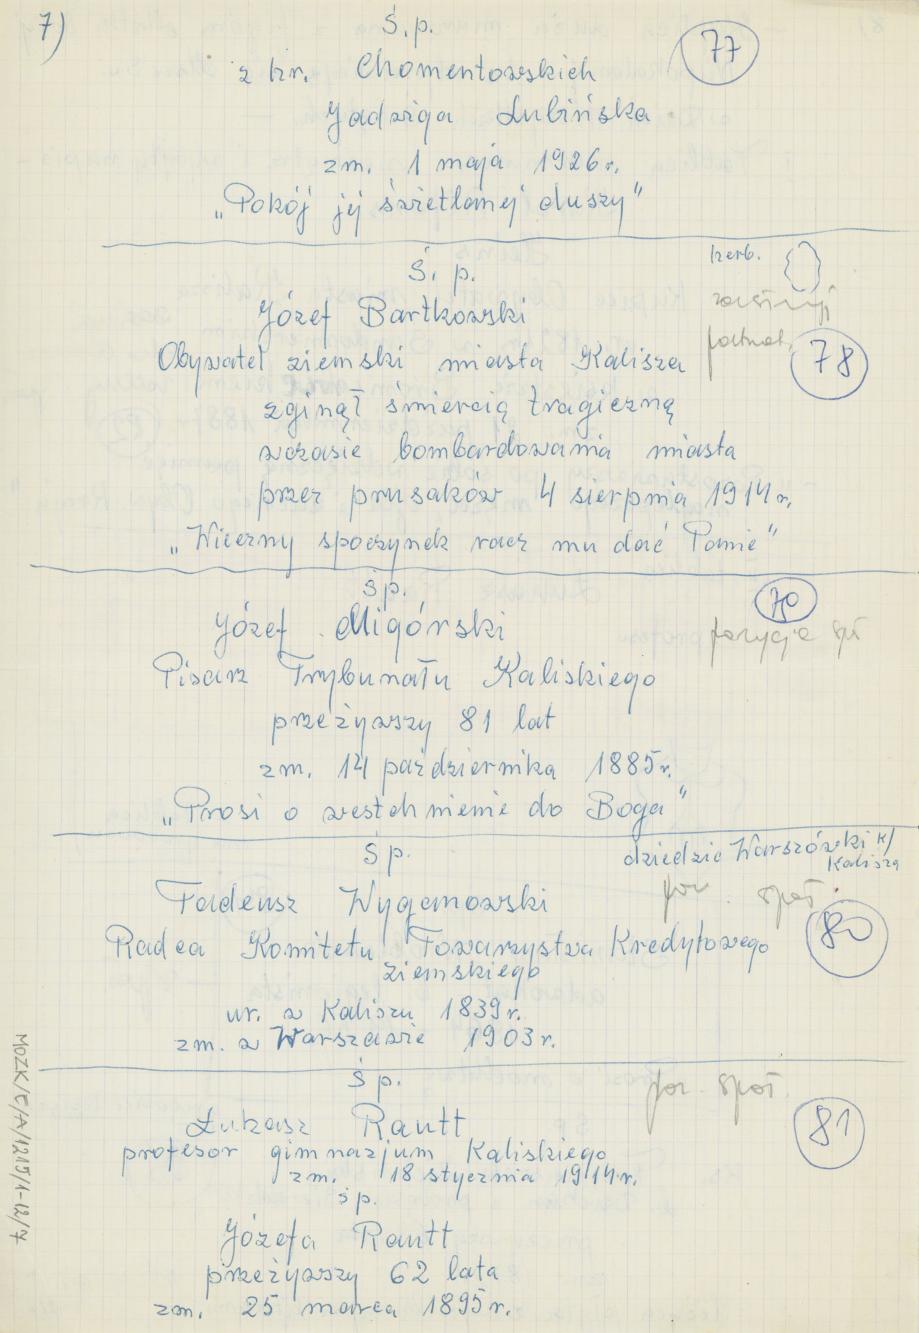 7)
Ś.p.
77
z hr. Chomentowskich
Jadwiga Łubińska
zm. 1 maja 1926r.
„Pokój jej świetlanej duszy"
Ś.p.
herb.
Józef Bartkowski
Obywatel ziemski miasta Kalisza
78
zginął śmiercią tragiczną
wczasie bombardowania miasta
przez prusaków 4 sierpnia 1914r.
„Wieczny spoczynek racz mu dać Panie"
śp.
Józef Migórski
pozycja
Pisarz Trybunału Kaliskiego
przeżywszy 81 lat
zm. 14 październrika 1885r.
„Prosi o westchnienie do Boga"
Śp.
dziedzic Warszówki k/
Kalisza
Tadeusz Wyganowski
80
Radca Komitetu Towarzystwa Kredytowego
ziemskiego
ur. w Kaliszu 1839r.
zm. w Warszawie 1903r.
Śp.
Łukasz Rautt
81
profesor gimnazjum Kaliskiego
zm. 18 stycznia 1914r.
śp.
Józefa Rautt
przeżywszy 62 lata
zm. 25 marca 1895r.
MOZK/C/A/1215/1-12/7